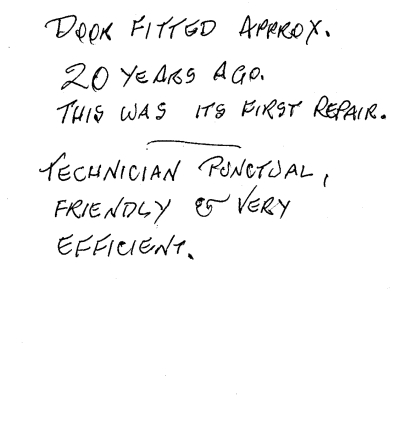 DOOR FITTED APPROX.
20 YEARS AGO.
THIS WAS ITS FIRST REPAIR.
TECHNICIAN PUNCTUAL,
FRIENDLY & VERY
EFFICIENT.